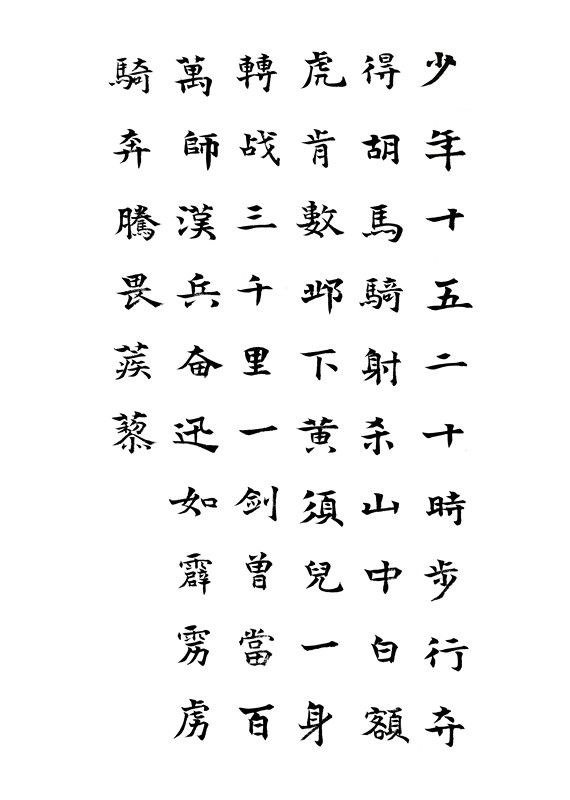 少年十五二十時步行夺
得胡馬騎射杀山中白額
虎肯數邺下黄須兒一身
轉战三千里一剑曾當百
萬師漢兵奋迅如霹雳虏
騎奔騰畏蒺藜